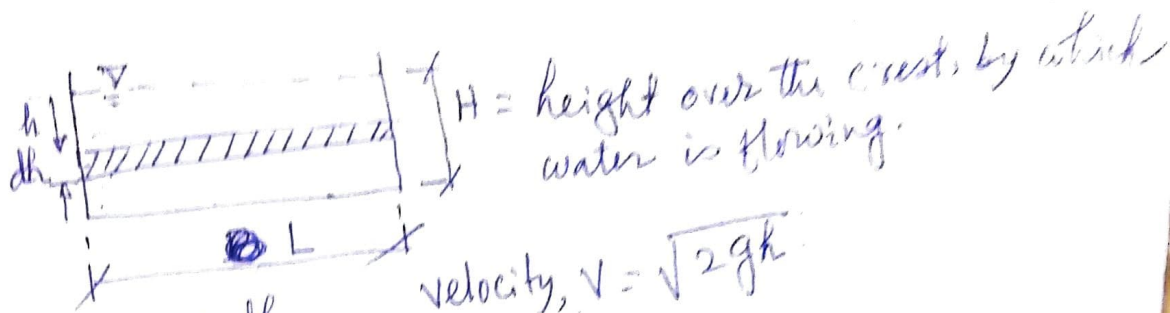 h
dh
H = height over the crest, by which
water is flowing.
L
velocity, V = √2gh